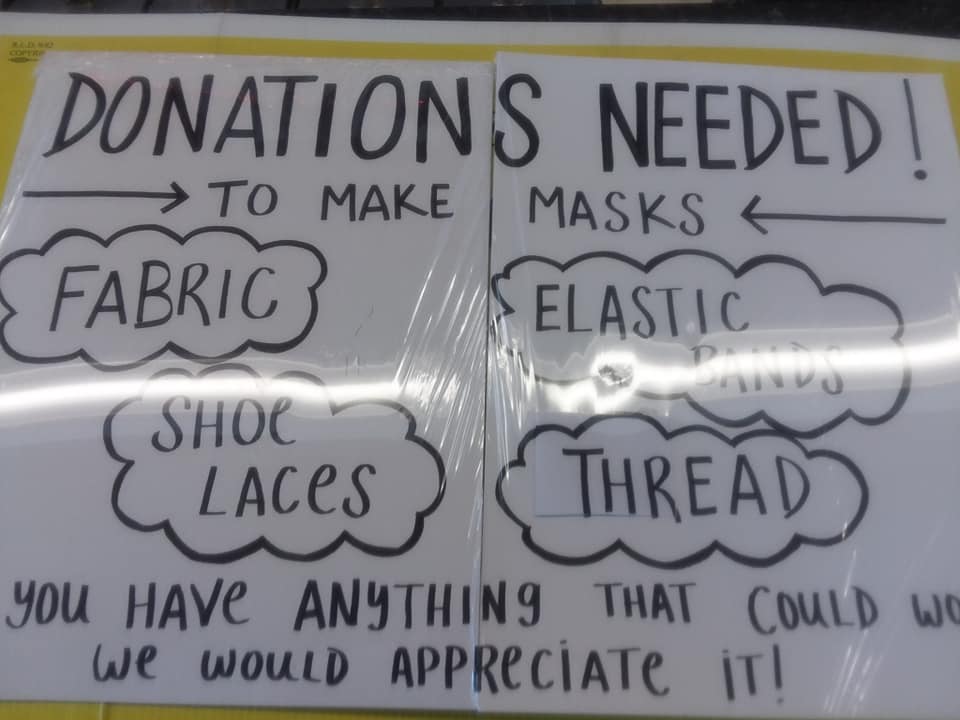 DONATIONS NEEDED!
TO MAKE MASKS
FABRIC
ELASTIC
BANDS
SHOE
LACES
THREAD
YOU HAVE ANYTHING THAT COULD WO
WE WOULD APPRECIATE IT!